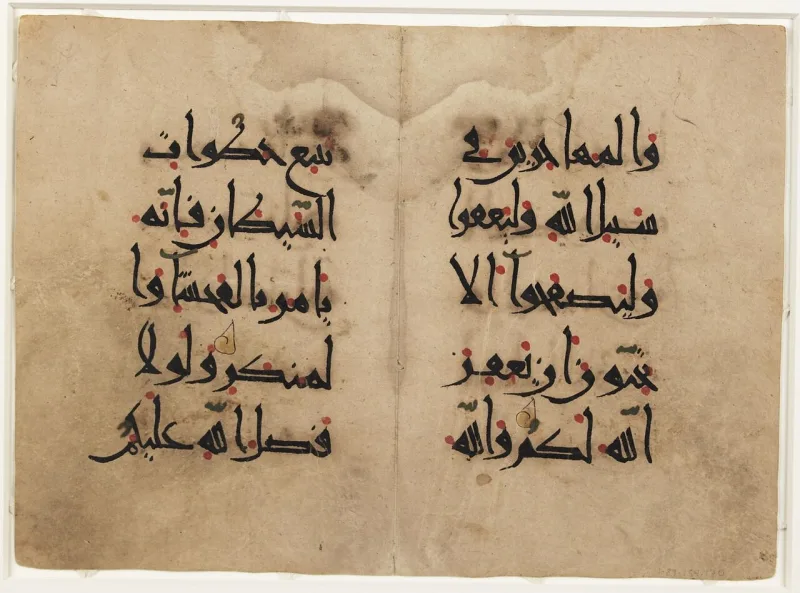 والمهاجرين في
سبيل الله وليعفوا
وليصفحوا ألا
تحبون أن يغفر
الله لكم والله
يتبع خطوات
الشيطان فإنه
يأمر بالفحشاء وا
لمنكر ولولا
فضل الله عليكم